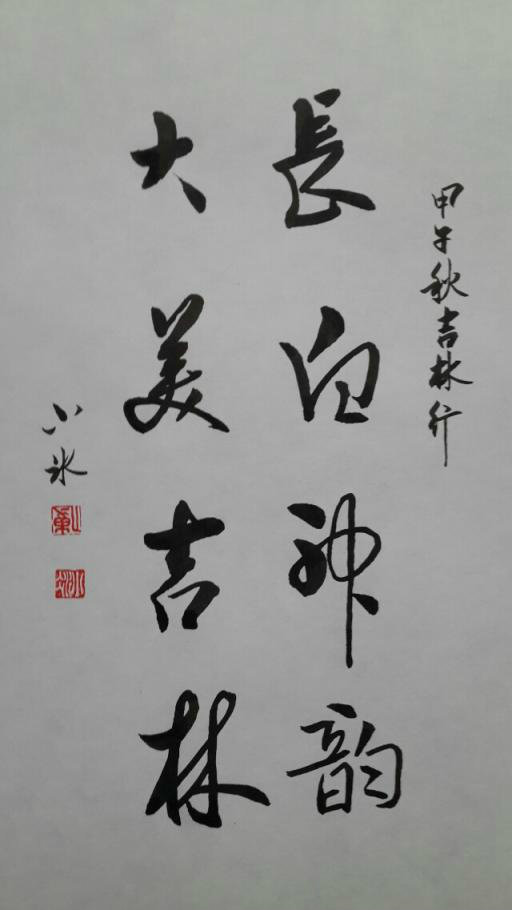 甲午秋吉林行
長白神韵
大美吉林
小冰